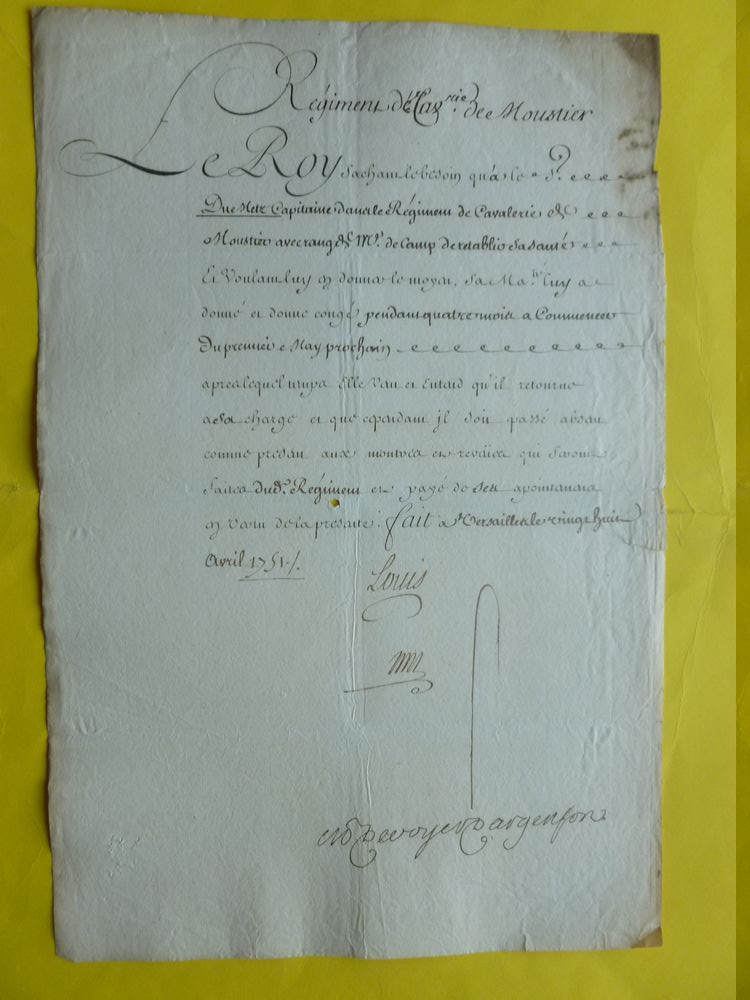 Régiment de Cav.rie de Moustier
Le Roy sachant le besoin qu'a le S.r
Due Metz Capitaine dans le Régiment de Cavalerie de
Moustier avec rang de M.e de Camp de rétablir sa santé
Et Voulant luy en donner le moyen, Sa Ma.té luy a
donné et donne congé pendant quatre mois a Commencer
Du premier May prochain
apres lequel temps Elle Veut et Entend qu'il retourne
a sa charge et que cependant il soit passé absent
comme present aux montres et reveües qui seront
faites dud.t Régiment et payé de ses apointemens
en vertu de la presente. fait a Versailles le vingt huit
Avril 1751./.
Louis
M de voyer d'argenson